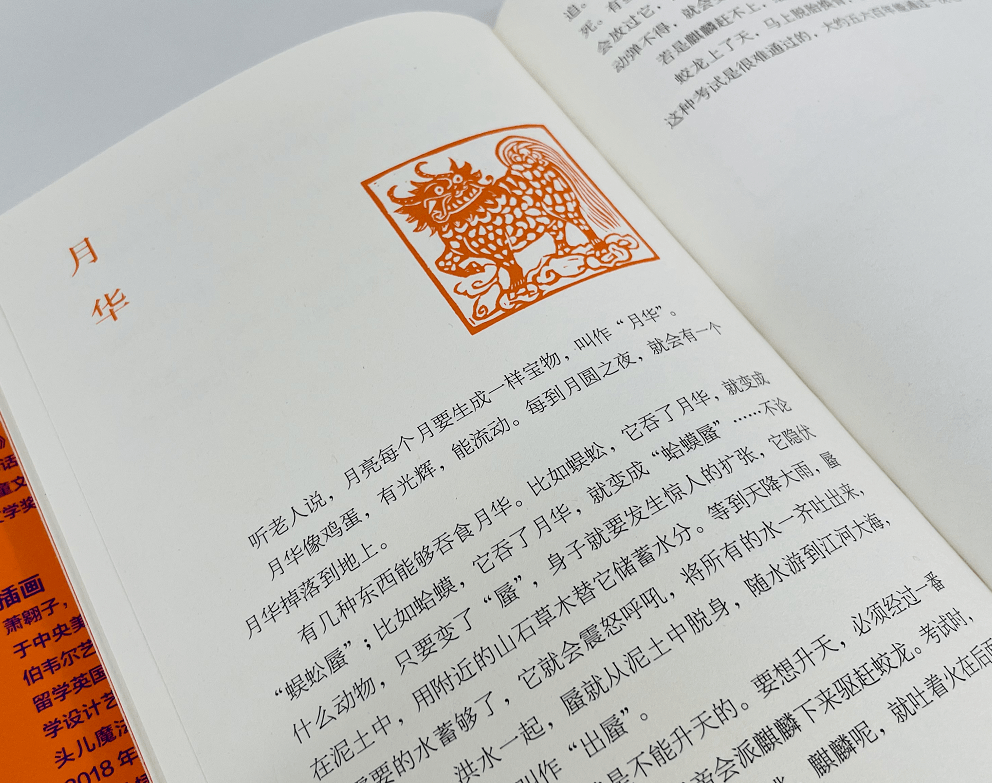 月
华
听老人说，月亮每个月要生成一样宝物，叫作“月华”。
月华像鸡蛋，有光辉，能流动。每到月圆之夜，就会有一个
月华掉落到地上。
有几种东西能够吞食月华。比如蜈蚣，它吞了月华，就变成
“蜈蚣蜃”；比如蛤蟆，它吞了月华，就变成“蛤蟆蜃”……不论
什么动物，只要变了“蜃”，身子就要发生惊人的扩张，它隐伏
在泥土中，用附近的山石草木替它储蓄水分。等到天降大雨，蜃
需要的水蓄够了，它就会震怒呼吼，将所有的水一齐吐出来，
洪水一起，蜃就从泥土中脱身，随水游到江河大海，
叫作“出蜃”。
是不能升天的。要想升天，必须经过一番
帝会派麒麟下来驱赶蛟龙。考试时，
麒麟呢，就吐着火在后面
道。
死。有
会放过它，
动弹不得，就会
若是麒麟赶不上，
蛟龙上了天，马上脱胎换骨，
这种考试是很难通过的，大约五六百年难通过一
话
童文
文学奖
插画
萧翱子，
于中央美
伯韦尔艺
留学英国
学设计艺
头儿魔法
2018 年